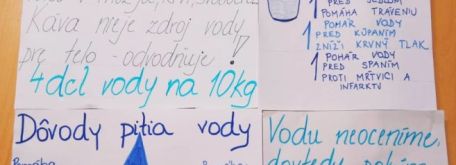 Káva nie je zdroj vody
pre telo - odvodňuje!
4 dcl vody na 10kg
PRED JEDLOM
1 POMÁHA TRÁVENIU
1 POHÁR VODY
PRED KÚPANÍM
ZNÍŽI KRVNÝ TLAK
1 POHÁR VODY
PRED SPANÍM
PROTI MŔTVICI A
INFARKTU
Dôvody pitia vody
Vodu neoceníme,